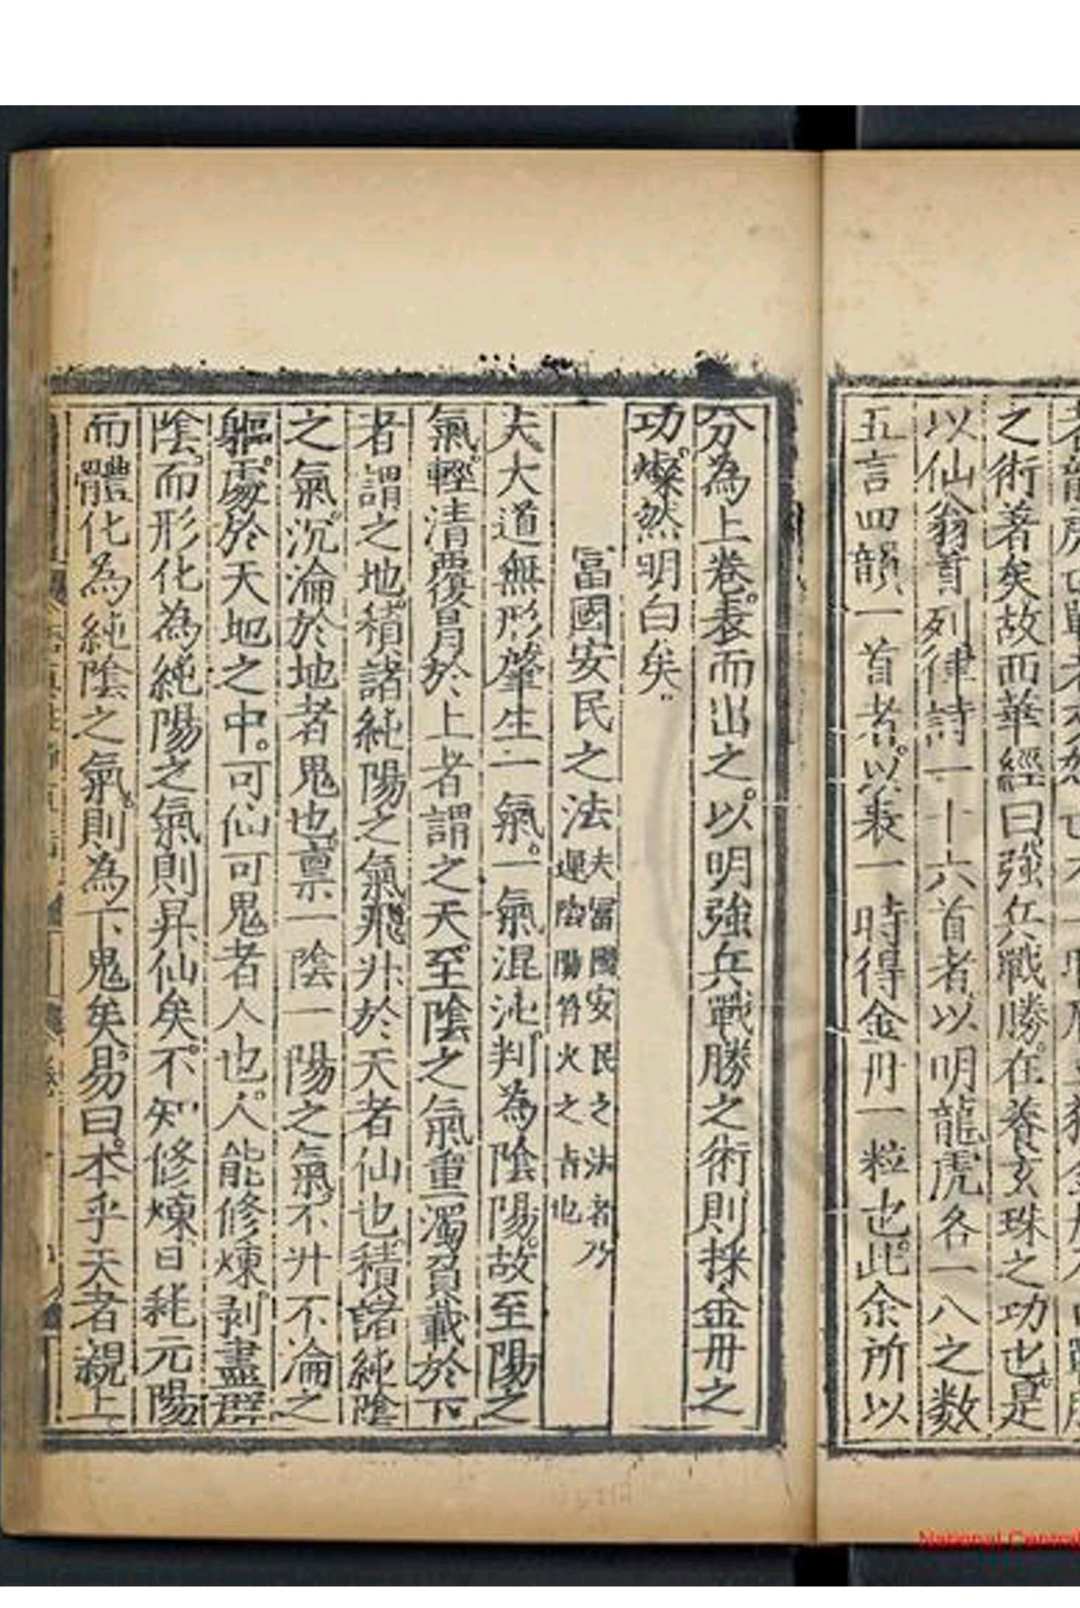 之術著矣故而華經曰強兵戰勝在養玄珠之功也是
以仙翁首列律詩一十六首者以明龍虎各一八之数
五言四韻一首者以表一時得金丹一粒也此余所以
分為上卷表而出之以明強兵戰勝之術則採金丹之
功燦然明白矣
富國安民之法
夫富國安民之法者乃
運陰陽符火之吉也
夫大道無形肇生一氣一氣混沌判為陰陽故至陽之
氣輕清覆冐於上者謂之天至陰之氣重濁負載於下
者謂之地積諸純陽之氣飛升於天者仙也積諸純陰
之氣沉淪於地者鬼也禀一陰一陽之氣不升不淪之
軀處於天地之中可仙可鬼者人也人能修煉剥盡群
陰而形化為純陽之氣則昇仙矣不知修煉日耗元陽
而體化為純陰之氣則為下鬼矣易曰本乎天者親上
National Central